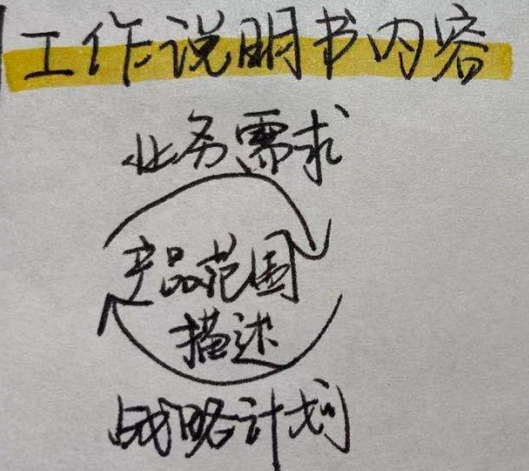 工作说明书内容
业务需求
产品范围
描述
战略计划